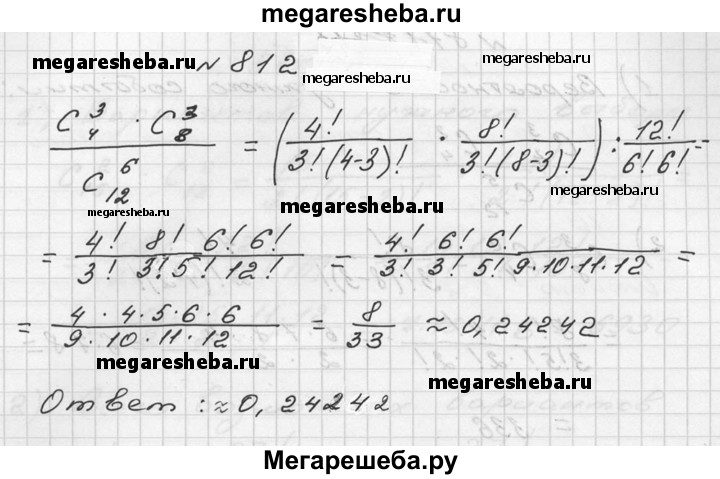 megaresheba.ru
megaresheba.ru № 812 megaresheba.ru megaresheba.ru
C₄³ · C₈³ / C₁₂⁶ = (4! / 3!(4-3)! · 8! / 3!(8-3)!) : 12! / 6! 6! =
megaresheba.ru megaresheba.ru megaresheba.ru
= 4! 8! 6! 6! / 3! 3! 5! 12! = 4! 6! 6! / 3! 3! 5! 9·10·11·12 =
= 4 · 4 · 5 · 6 · 6 / 9 · 10 · 11 · 12 = 8 / 33 ≈ 0,24242
megaresheba.ru megaresheba.ru
Ответ : ≈ 0,24242
Мегарешеба.ру